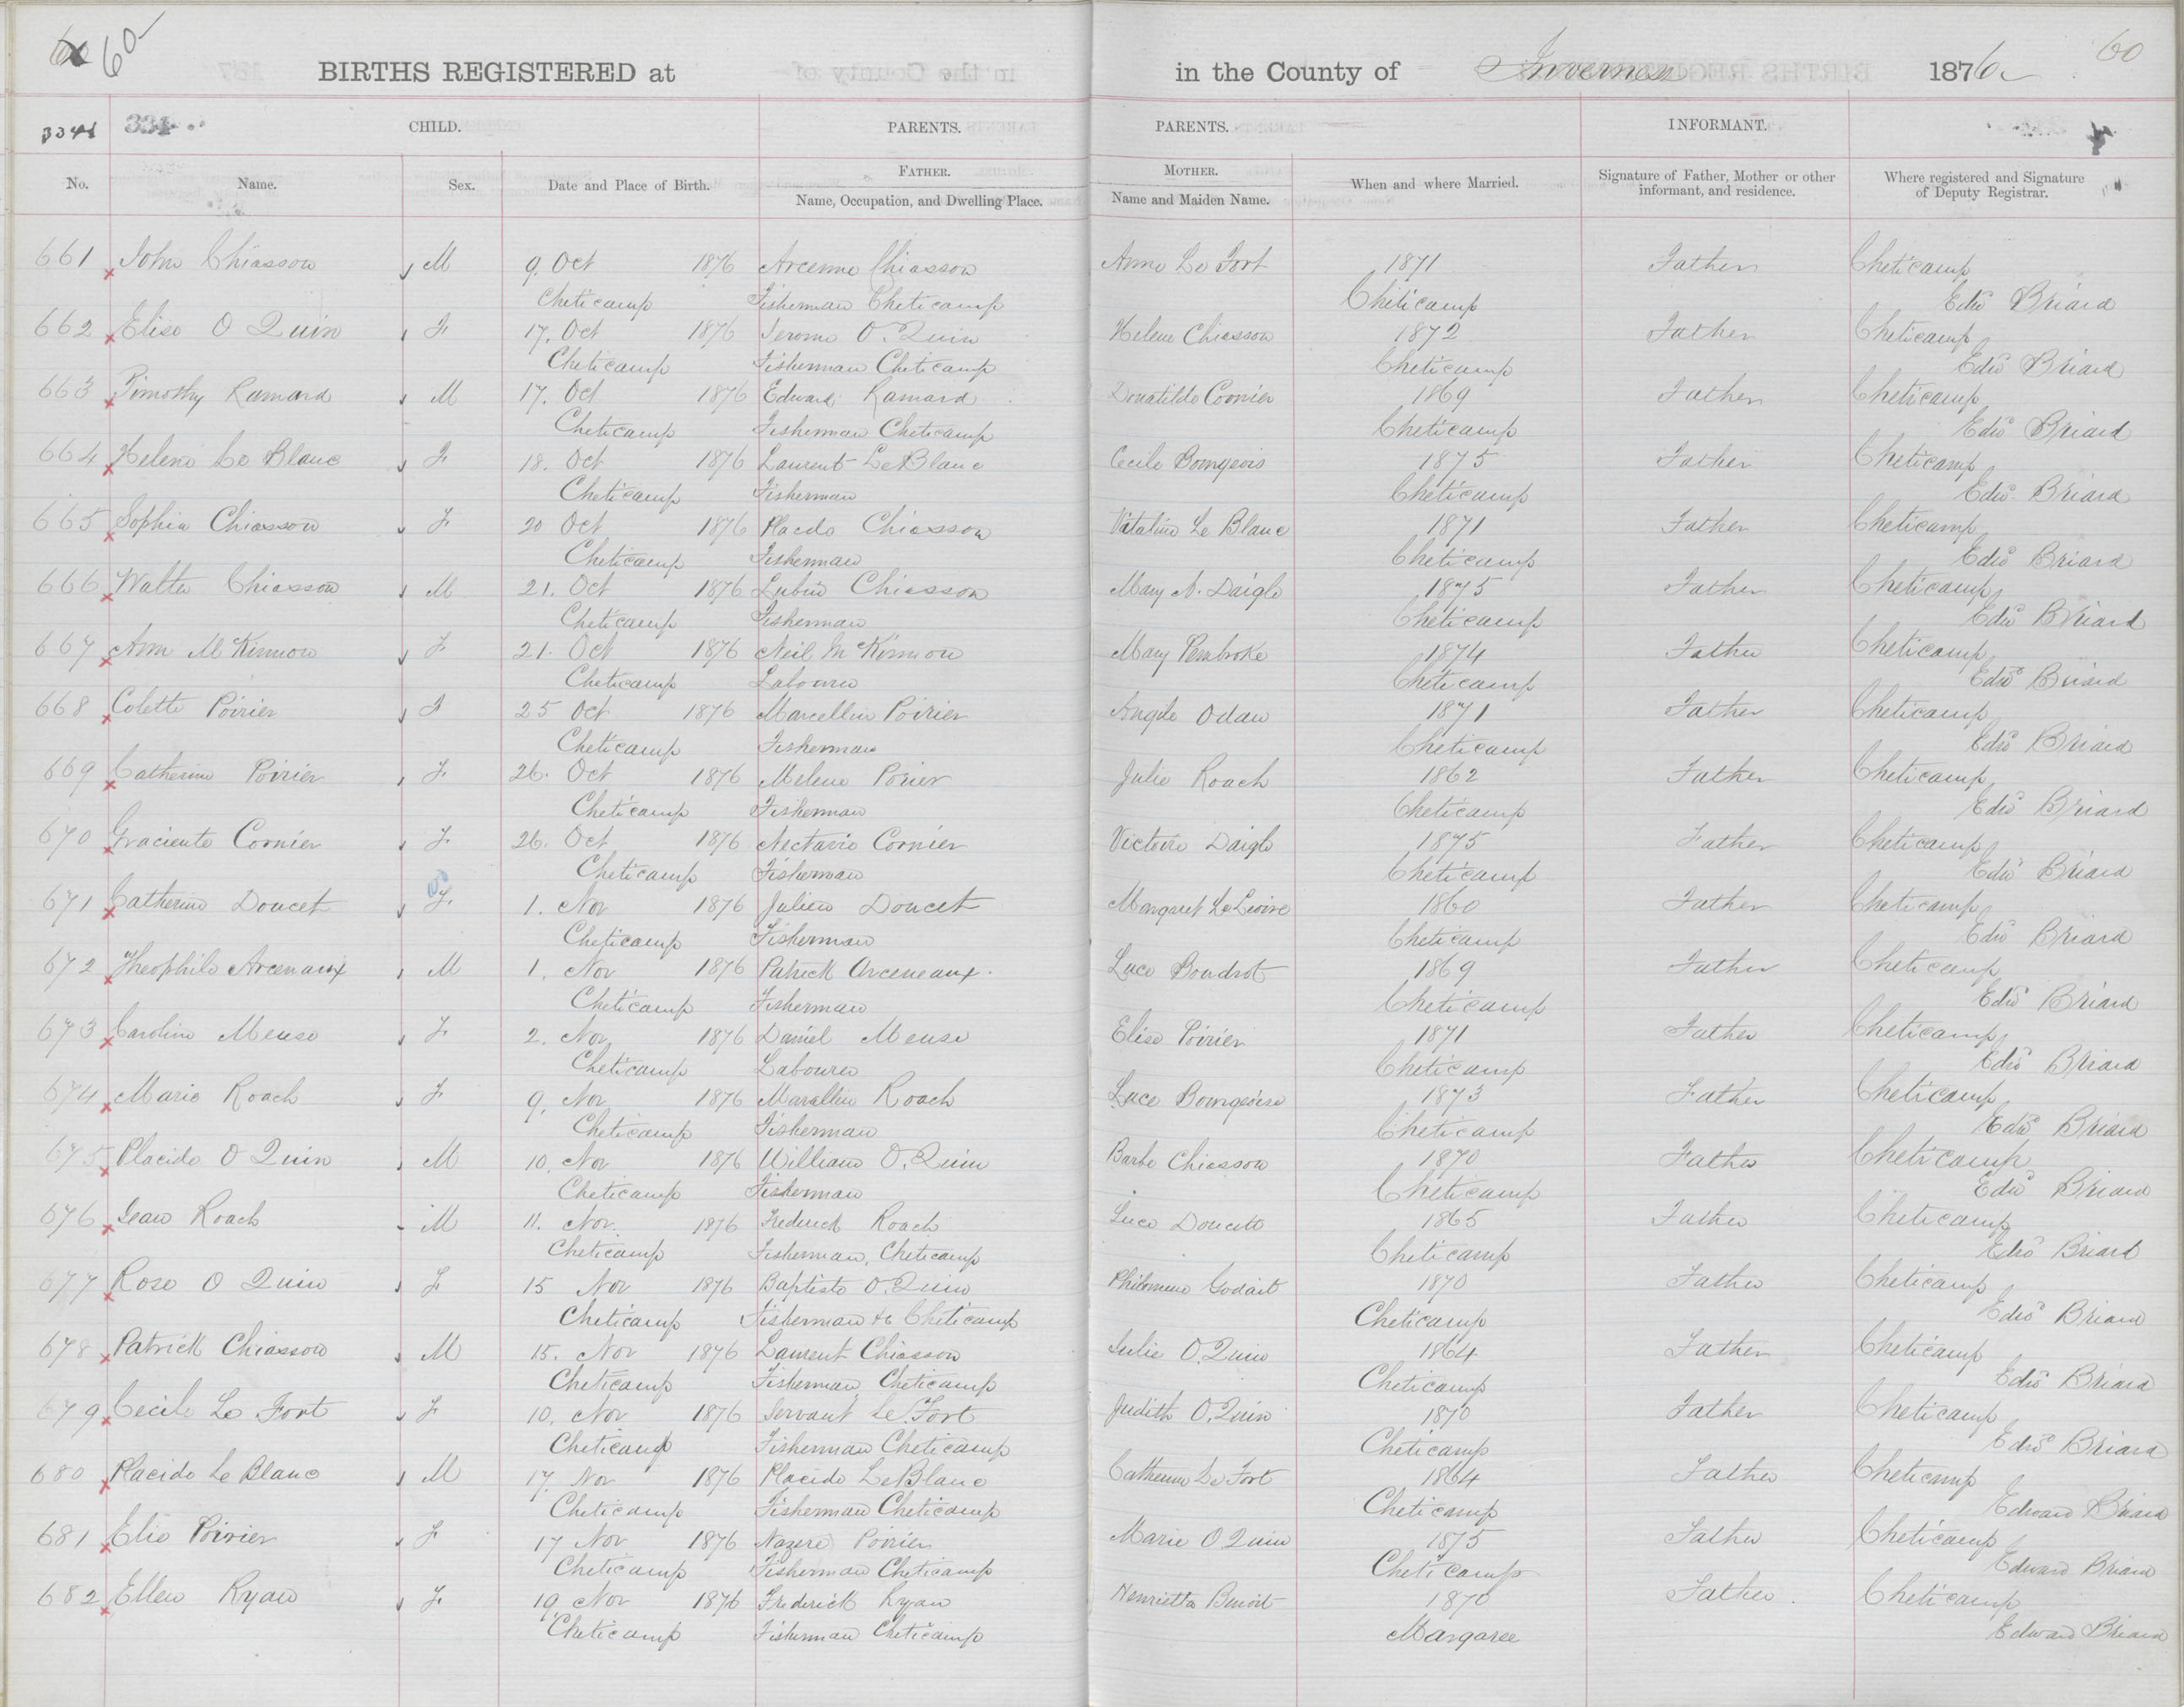 60 60
BIRTHS REGISTERED at in the County of Inverness 1876 60
3341 331
CHILD. PARENTS. PARENTS. INFORMANT.
No. Name. Sex. Date and Place of Birth. FATHER. Name, Occupation, and Dwelling Place. MOTHER. Name and Maiden Name. When and where Married. Signature of Father, Mother or other informant, and residence. Where registered and Signature of Deputy Registrar.
661 John Chiasson M 9. Oct 1876 Arcenne Chiasson Anne Le Fort 1871 Father Cheticamp
Cheticamp Fisherman Cheticamp Cheticamp Edwd Briard
662 Elise O Quin F 17. Oct 1876 Jerome O. Quin Helene Chiasson 1872 Father Cheticamp
Cheticamp Fisherman Cheticamp Cheticamp Edwd Briard
663 Timothy Ramard M 17. Oct 1876 Edward Ramard Donatilde Cormier 1869 Father Cheticamp
Cheticamp Fisherman Cheticamp Cheticamp Edwd Briard
664 Helene Le Blanc F 18. Oct 1876 Laurent LeBlanc Cecile Bourgeois 1875 Father Cheticamp
Cheticamp Fisherman Cheticamp Edwd Briard
665 Sophia Chiasson F 20 Oct 1876 Placde Chiasson Vitaline Le Blanc 1871 Father Cheticamp
Cheticamp Fisherman Cheticamp Edwd Briard
666 Walter Chiasson M 21. Oct 1876 Lubin Chiasson Mary A. Daigle 1875 Father Cheticamp
Cheticamp Fisherman Cheticamp Edwd Briard
667 Ann McKinnon F 21. Oct 1876 Neil McKinnon Mary Pembroke 1874 Father Cheticamp
Cheticamp Labourer Cheticamp Edwd Briard
668 Colette Poirier F 25 Oct 1876 Marcellin Poirier Angile Odaw 1871 Father Cheticamp
Cheticamp Fisherman Cheticamp Edwd Briard
669 Catherine Poirier F 26. Oct 1876 Melene Poirier Julie Roach 1862 Father Cheticamp
Cheticamp Fisherman Cheticamp Edwd Briard
670 Graciente Cormier F 26. Oct 1876 Nectavie Cormier Victoire Daigle 1875 Father Cheticamp
Cheticamp Fisherman Cheticamp Edwd Briard
671 Catherine Doucet F 1. Nov 1876 Julien Doucet Margaret Le 1860 Father Cheticamp
Cheticamp Fisherman Cheticamp Edwd Briard
672 Theophile Arcenaux M 1. Nov 1876 Patrick Arceneaux. Luce Boudrot 1869 Father Cheticamp
Cheticamp Fisherman Cheticamp Edwd Briard
673 Caroline Meuse F 2. Nov 1876 Daniel Meuse Elise Poirier 1871 Father Cheticamp
Cheticamp Labourer Cheticamp Edwd Briard
674 Marie Roach F 9. Nov 1876 Marcellin Roach Luce Bourgeoise 1873 Father Cheticamp
Cheticamp Fisherman Cheticamp Edwd Briard
675 Placide O Quin M 10. Nov 1876 William O. Quin Barbe Chiasson 1870 Father Cheticamp
Cheticamp Fisherman Cheticamp Edwd Briard
676 Jean Roach M 11. Nov. 1876 Frederick Roach Luce Doucett 1865 Father Cheticamp
Cheticamp Fisherman, Cheticamp Cheticamp Edwd Briard
677 Rose O Quin F 15 Nov 1876 Baptiste O. Quin Philomene Godait 1870 Father Cheticamp
Cheticamp Fisherman &c Cheticamp Cheticamp Edwd Briard
678 Patrick Chiasson M 15. Nov 1876 Laurent Chiasson Julie O. Quin 1864 Father Cheticamp
Cheticamp Fisherman, Cheticamp Cheticamp Edwd Briard
679 Cecile Le Fort F 10. Nov 1876 Servant Le Fort Judith O. Quin 1870 Father Cheticamp
Cheticamp Fisherman Cheticamp Cheticamp Edwd Briard
680 Placide Le Blanc M 17. Nov 1876 Placide LeBlanc Catherine Le Fort 1864 Father Cheticamp
Cheticamp Fisherman Cheticamp Cheticamp Edward Briard
681 Elie Poirier F 17 Nov 1876 Nazere Poirier Marie O Quin 1875 Father Cheticamp
Cheticamp Fisherman Cheticamp Cheticamp Edward Briard
682 Ellen Ryan F 19 Nov 1876 Frederick Ryan Henrietta Benoit 1870 Father. Cheticamp
Cheticamp Fisherman Cheticamp Margaree Edward Briard